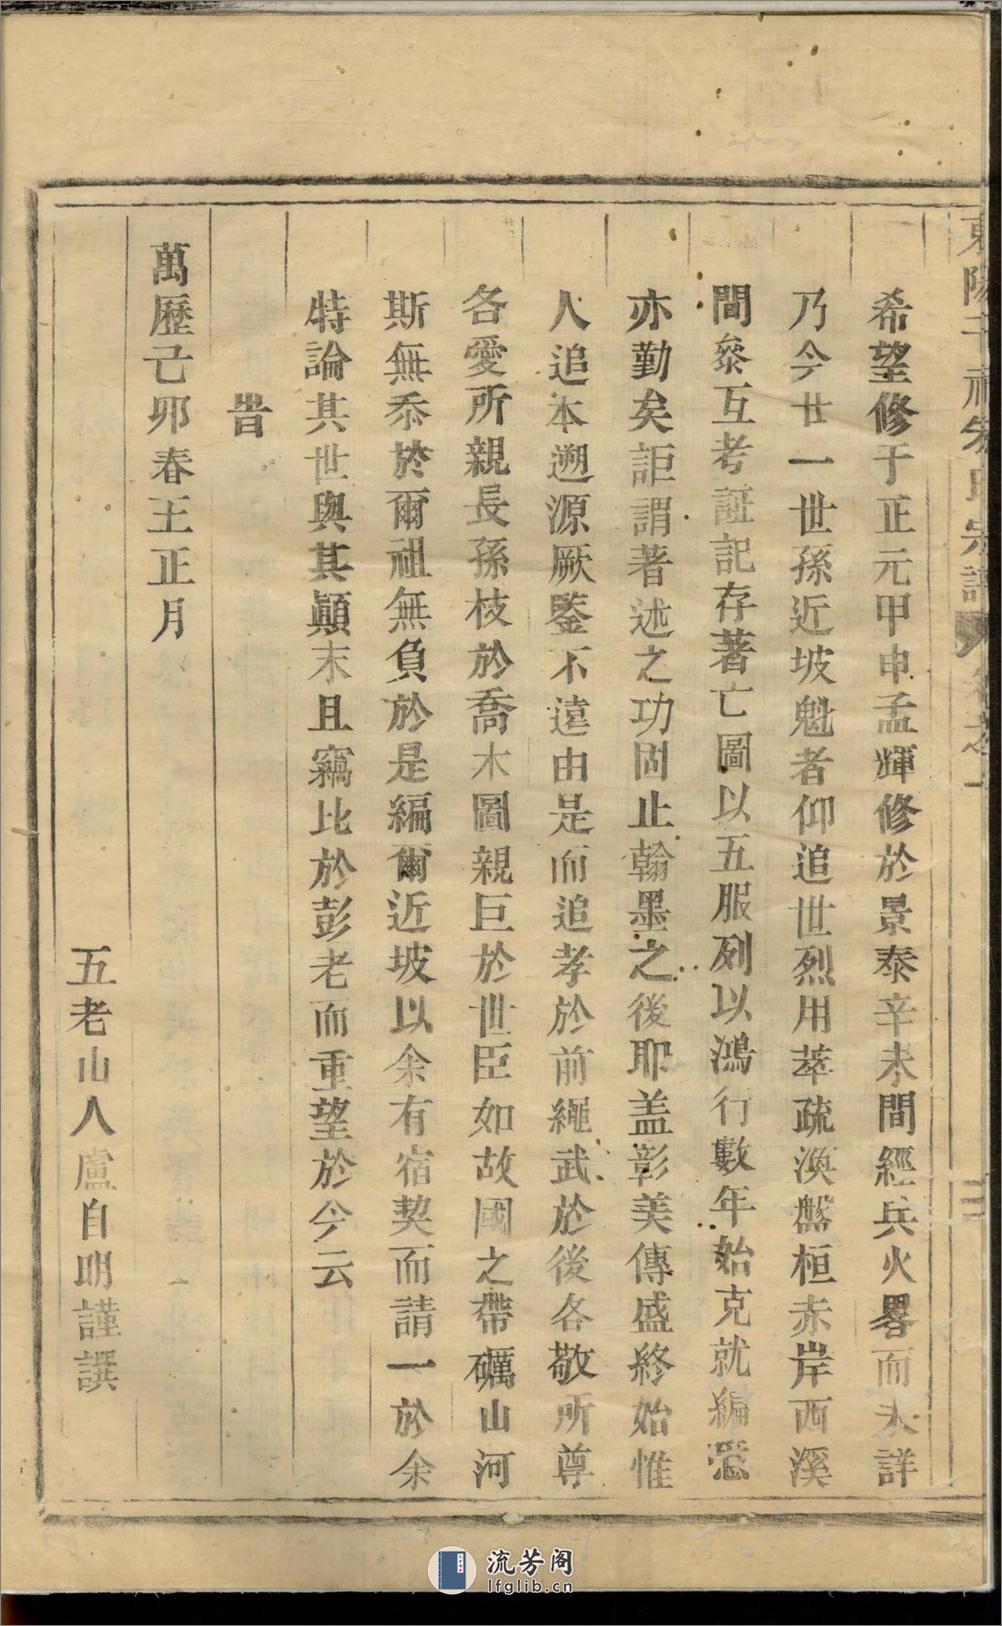 東陽千祥宋氏宗譜 卷之一 三
希望修于正元甲申孟輝修於景泰辛未間經兵火畧而未詳
乃今廿一世孫近坡魁者仰追世烈用萃疏渙盤桓赤岸西溪
間叅互考証記存著亡圖以五服列以鴻行數年始克就編
亦勤矣詎謂著述之功罔止翰墨之後耶盖彰美傳盛終始惟
人追本遡源厥鑒不遠由是而追孝於前繩武於後各敬所尊
各愛所親長孫枝於喬木圖親巨於世臣如故國之帶礪山河
斯無忝於爾祖無負於是編爾近坡以余有宿契而請一於余
特論其世與其顚末且竊比於彭老而重望於今云
旹
萬歷己卯春王正月
五老山人盧自明謹譔
流芳阁
lfglib.cn